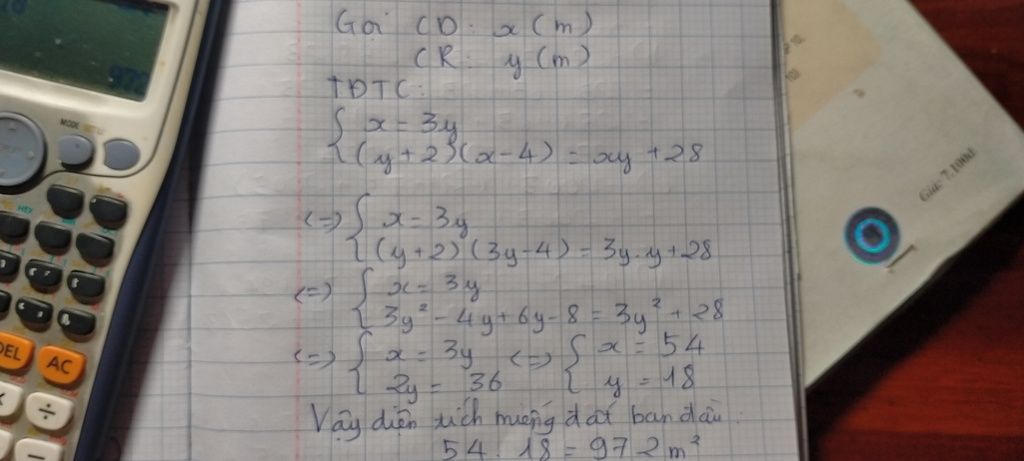 Gọi CD: x (m)
CR: y (m)
TĐTC:
{ x = 3y
(y+2)(x-4) = xy + 28
<=> { x = 3y
(y+2)(3y-4) = 3y.y+28
<=> { x = 3y
3y² - 4y + 6y - 8 = 3y² + 28
<=> { x = 3y <=> { x = 54
2y = 36 y = 18
Vậy diện tích miếng đất ban đầu:
54 . 18 = 972 m²
972
MODE
DEL
AC
÷
−
Giá: 7.100đ